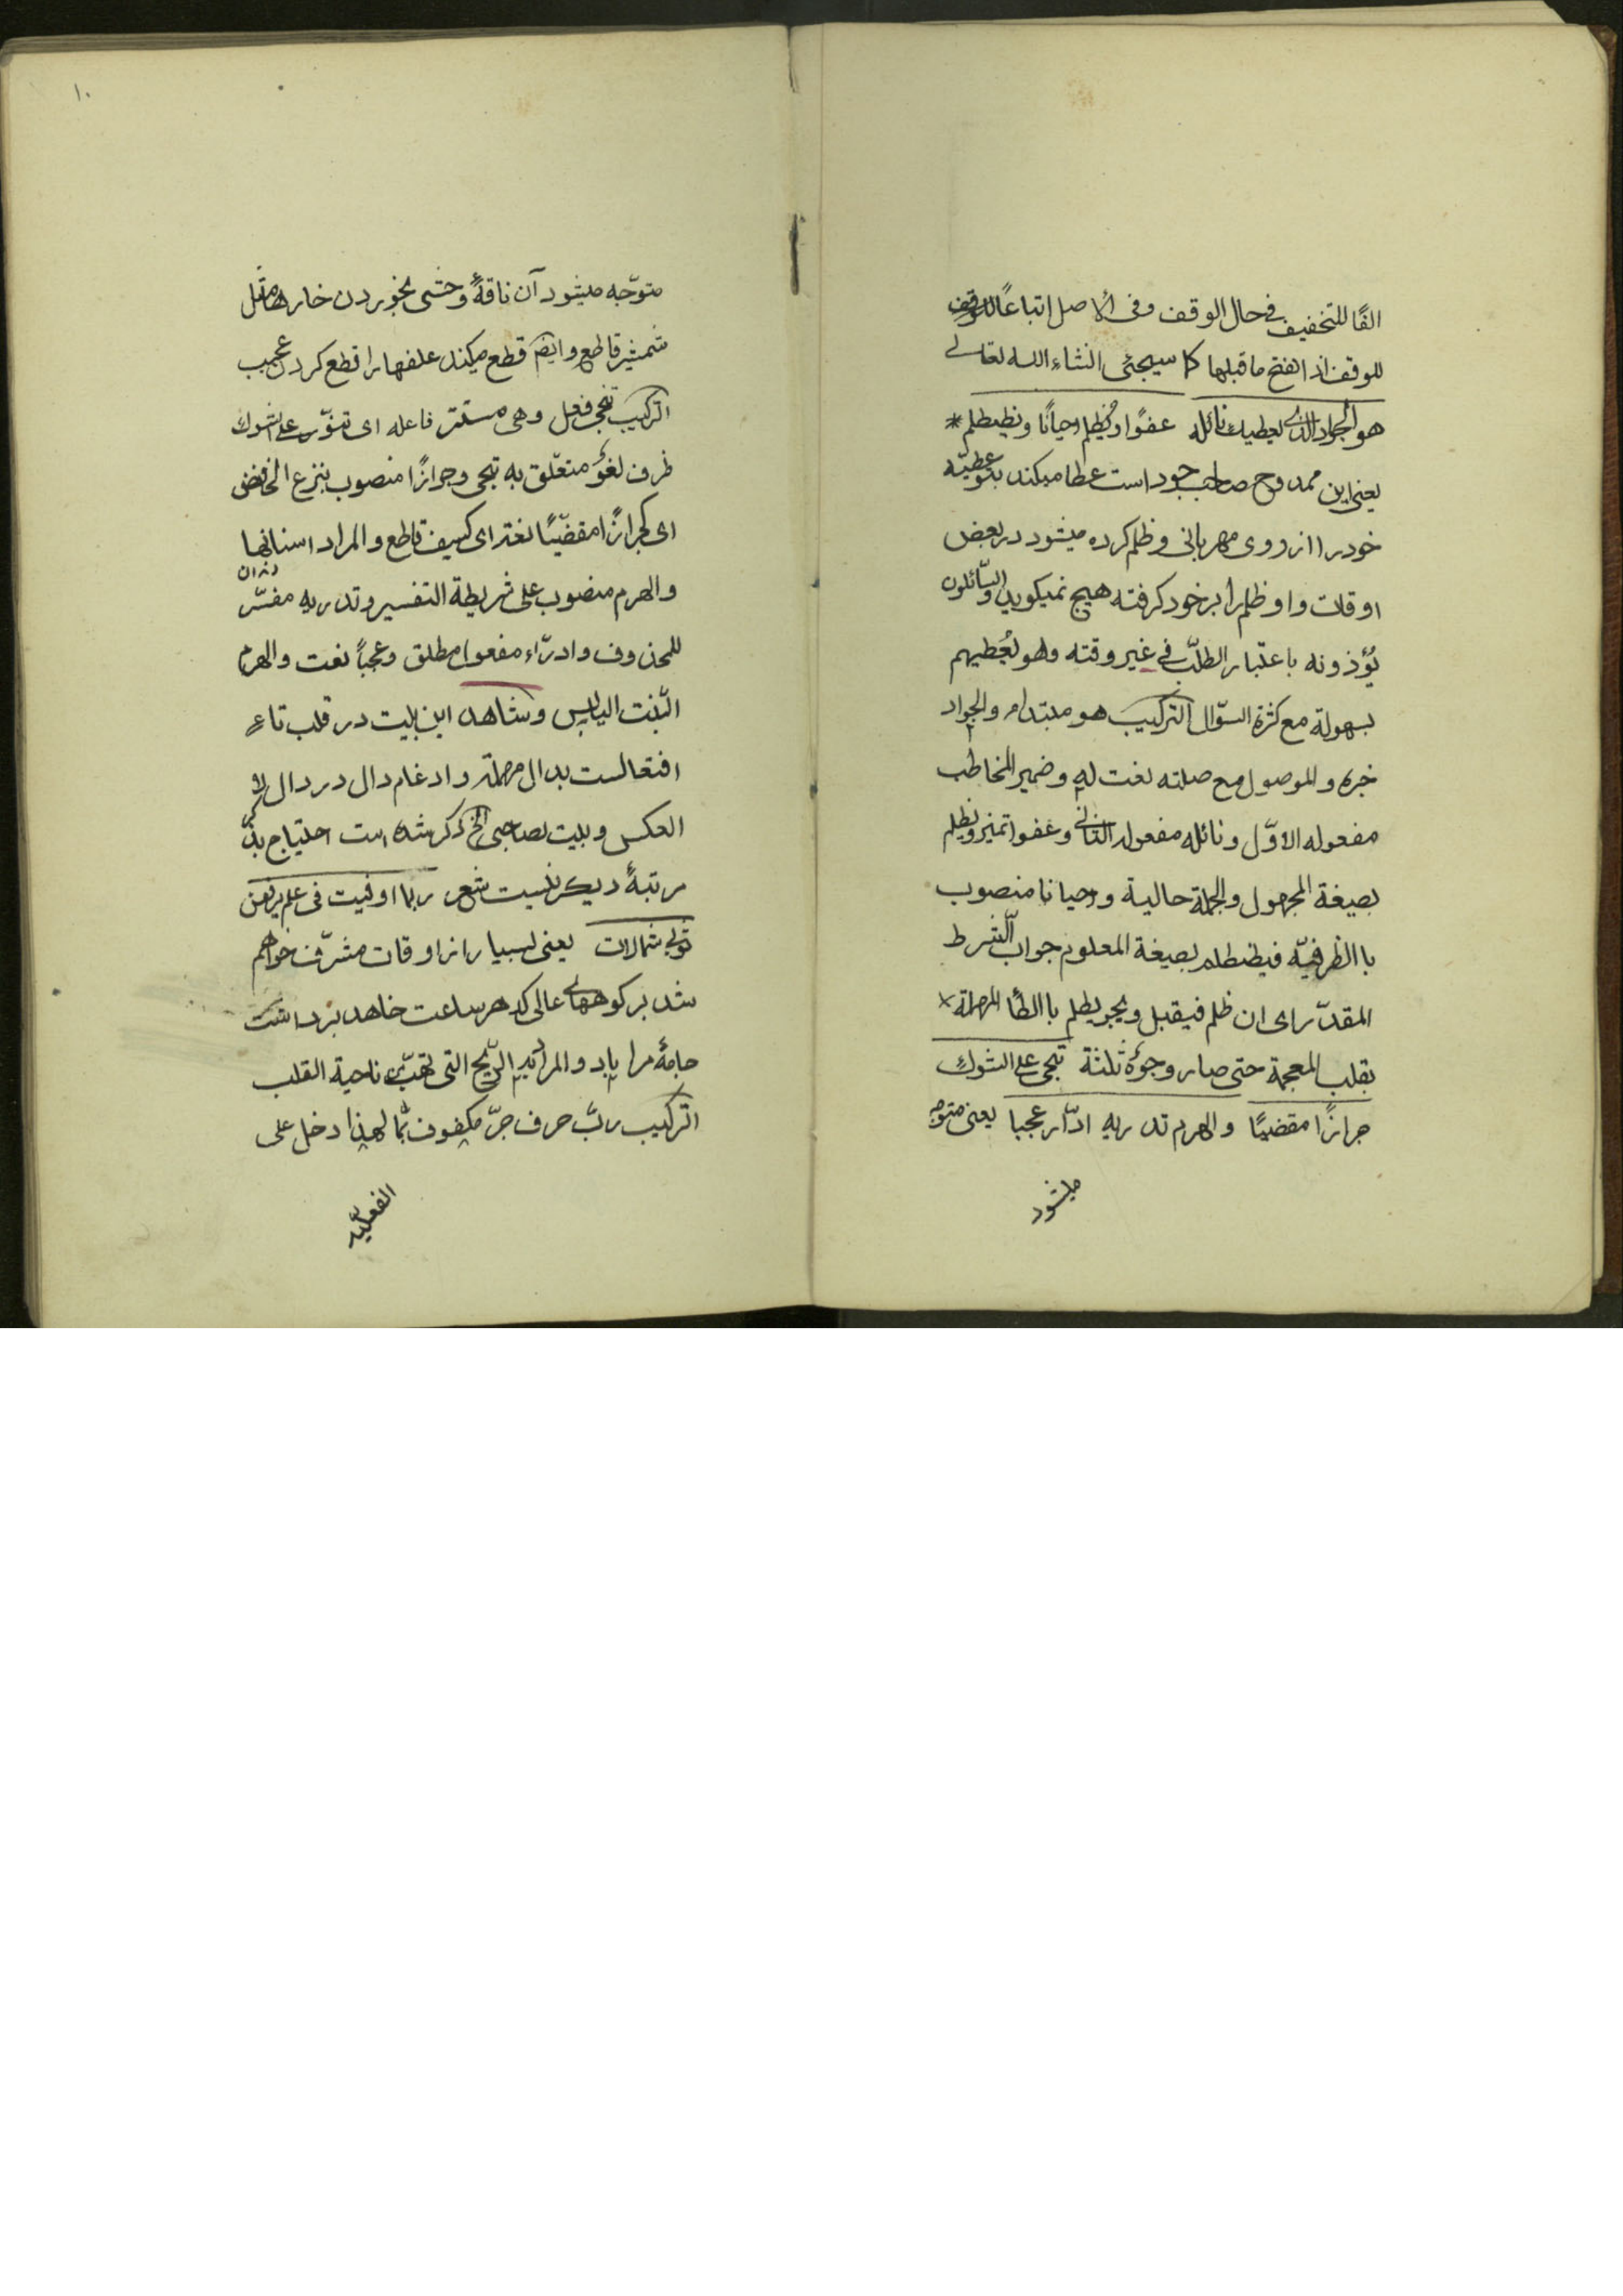 الفًا للتخفيف فی حال الوقف وفی الاصل اتباعًا للوقف
للوقف اذا انفتح ما قبلها کما سیجئی انشاء الله تعالی
هو الجواد الذی یعطیك نائله عفوًا ویظلم احیانًا ویظطلم *
یعنی این ممدوح صاحب جود است عطا میکند بتو عطیّه
خود را از روی مهربانی وظلم کرده میشود در بعض
اوقات واو ظلم را بر خود کرفته هیچ نمیکوید والسّائلون
یؤذونه باعتبار الطلب فی غیر وقته وهو یُعطیهم
بسهولة مع کثرة السؤال الترکیب هو مبتداء والجواد
خبره والموصول مع صلته نعت له وضمیر المخاطب
مفعوله الاوّل ونائله مفعوله الثانی وعفوا تمیز ویظلم
بصیغة المجهول والجملة حالیة واحیانا منصوب
باالظرفیّه فیظطلم بصیغة المعلوم جواب الشّرط
المقدّر ای ان ظلم فیقبل ویجو یطلم باالطّا المهملة ×
بقلب المعجمة حتی صار وجوهٌ ثلثة تنجی علی الشوك
جرازًا مقضبًا والهرم تدریه ادّراء عجبا یعنی متوجه
میشود
١٠
متوّجه میشود آن ناقهٔ وحشی بخوردن خارها مثل
شمشیر قاطع وایضَ قطع میکند علفها را قطع کردن عجیب
الترکیب تنجی فعل وهی مستتر فاعله ای علی الشوك
ظرف لغوٌ متعلّق به تنجی وجرازًا منصوب بنزع الخافض
ای کجرازًا مقضبًا نعته ای کسیف قاطع والمراد اسنانها
دندان
والهرم منصوب علی شریطة التفسیر وتدریه مفسّر
للمحذوف وادرّاء مفعول مطلق وعجباً نعت والهرم
النّبت الیابس وشاهد این بیت در قلب تاء
افتعالست بدال مهملة وادغام دال در دال لا
العکس وبیت بصاحبی الخ ذکر شده است احتیاج بذکر
مرتبهٔ دیکر نیست شعر ربما اوفیت فی علم یرفعن
ثوبی شمالات یعنی بسیار از اوقات مشرّف خواهم
شد بر کوههای عالی که هر ساعت خاهد برداشت
جامهٔ مرا باد والمراد به الرّیح التی تهبّ من ناحیة القلب
الترکیب ربّ حرف جرّ مکفوف بما لهذا دخل علی
الفعلیّه